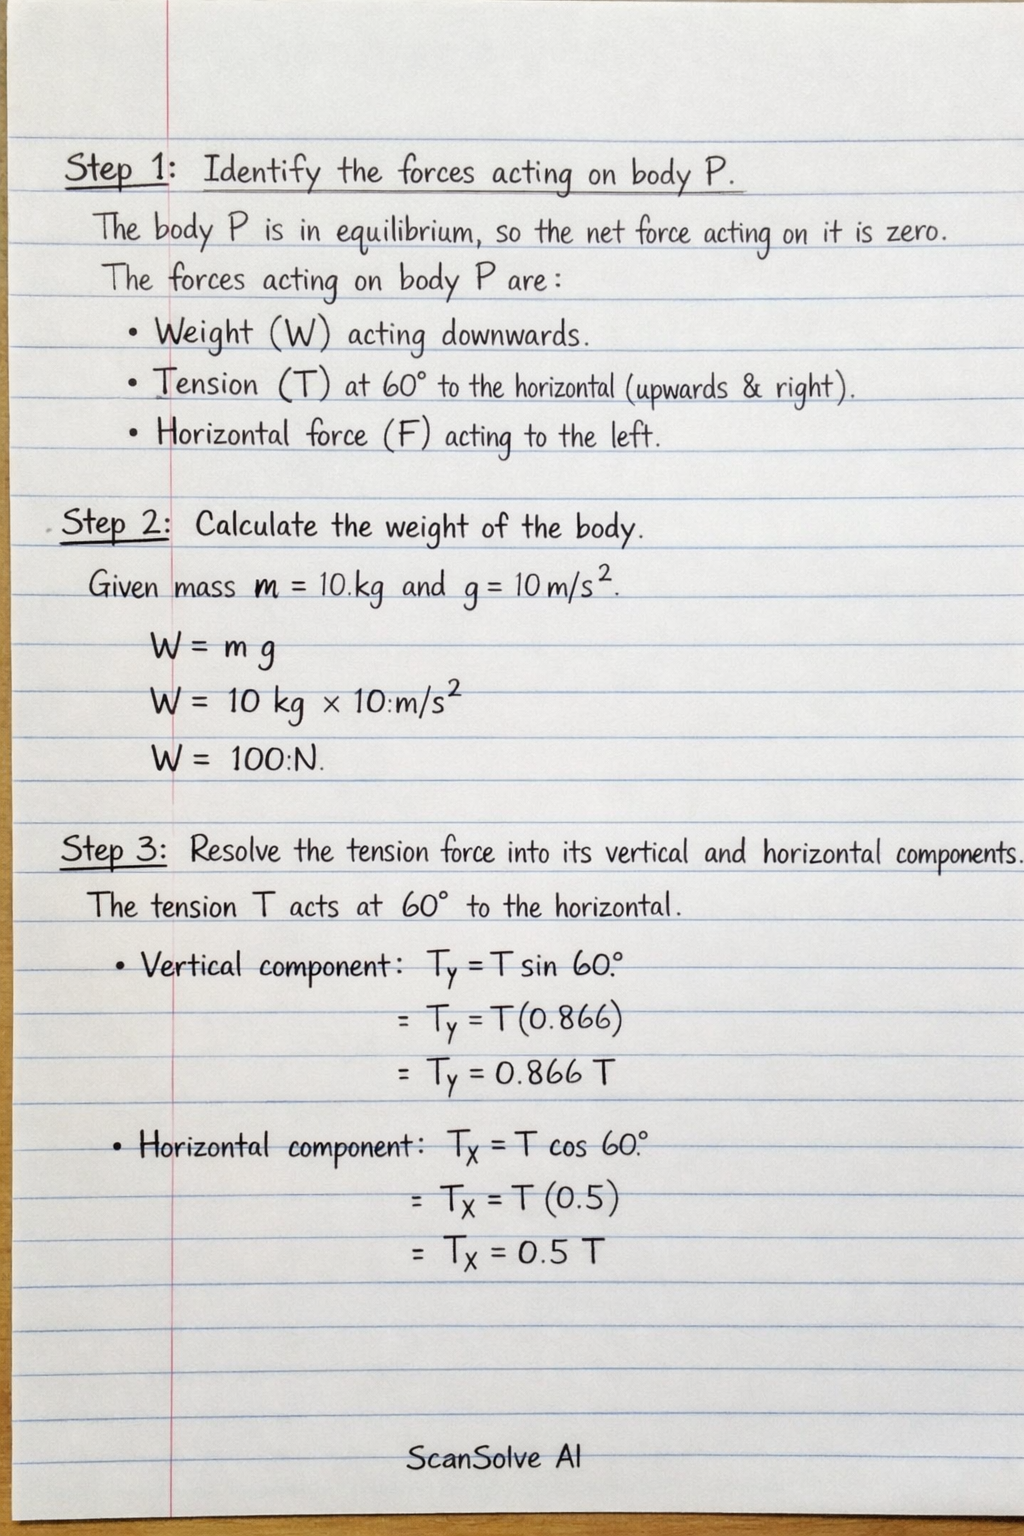 Step 1: Identify the forces acting on body P.
The body P is in equilibrium, so the net force acting on it is zero.
The forces acting on body P are:
• Weight (W) acting downwards.
• Tension (T) at 60° to the horizontal (upwards & right).
• Horizontal force (F) acting to the left.
Step 2: Calculate the weight of the body.
Given mass m = 10.kg and g = 10 m/s².
W = m g
W = 10 kg × 10:m/s²
W = 100:N.
Step 3: Resolve the tension force into its vertical and horizontal components.
The tension T acts at 60° to the horizontal.
• Vertical component: Ty = T sin 60.°
= Ty = T(0.866)
= Ty = 0.866 T
• Horizontal component: Tx = T cos 60.°
= Tx = T (0.5)
= Tx = 0.5 T
ScanSolve AI